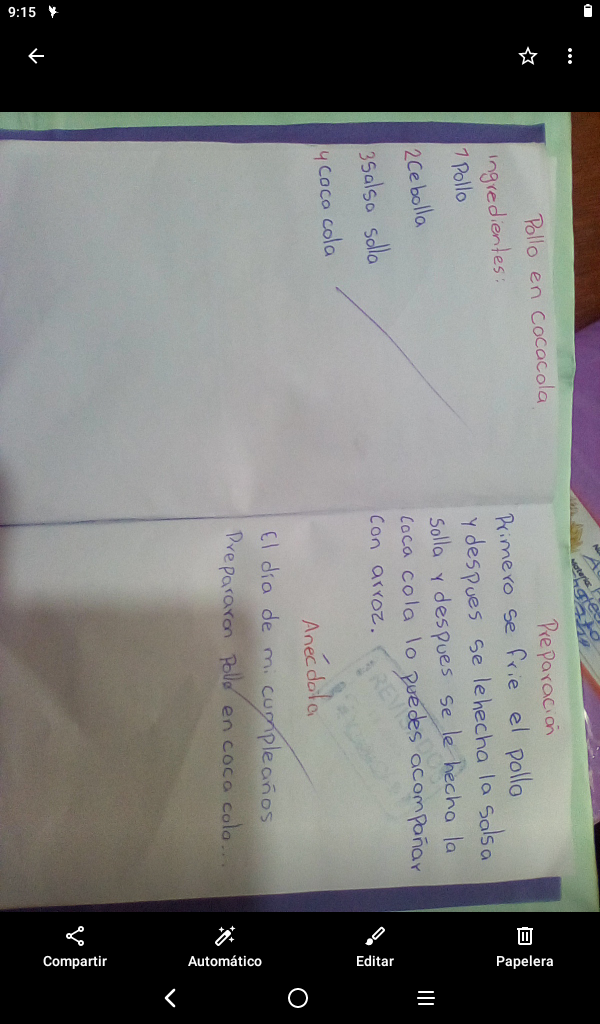 9:15
Pollo en Cocacola.
ingredientes:
1 Pollo
2 Cebolla
3 Salsa solla
4 coca cola
Preparación
Primero se frie el pollo
y despues se lehecha la salsa
solla y despues se le hecha la
coca cola lo puedes acompañar
con arroz.
REVISADO
Anécdota
El día de mi cumpleaños
Prepararon Pollo en coca cola...
Compartir
Automático
Editar
Papelera